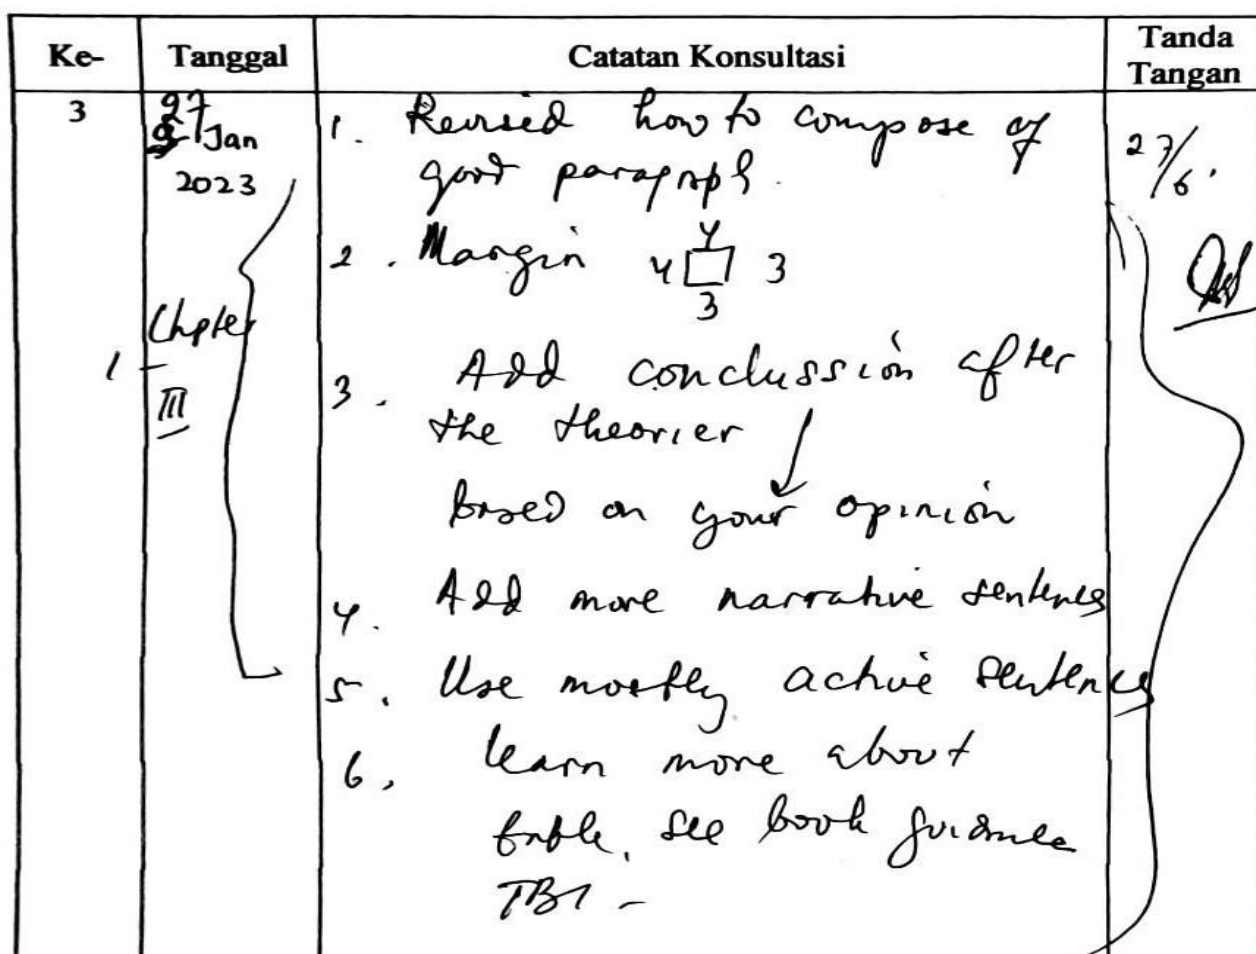 Ke- Tanggal Catatan Konsultasi Tanda Tangan
3 27 Jan 2023
Chpter
1 - III
1. Revised how to compose of
good paragraph.
2. Margin 4 4 3 3
3. Add conclussion after
the theorier
based on your opinion
4. Add more narrative sentences
5. Use mostly active sentences
6. learn more about
table, see book guidance
TBI -
27/6.